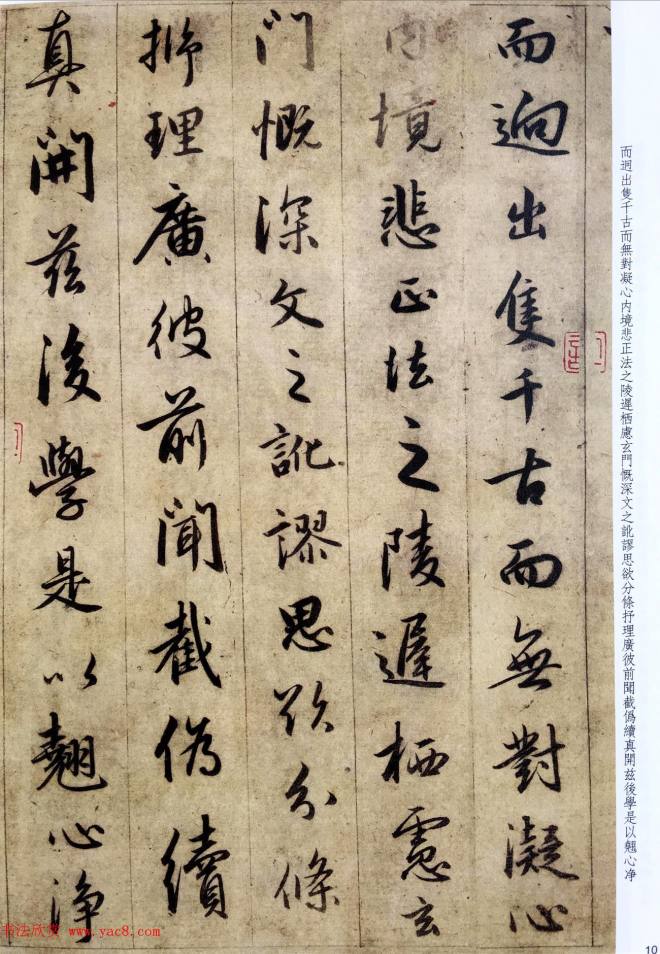 而迥出隻千古而無對凝心
内境悲正法之陵遲栖慮玄
門慨深文之訛謬思欲分條
抒理廣彼前聞截偽續
真開兹後學是以翹心净
而迥出隻千古而無對凝心内境悲正法之陵遲栖慮玄門慨深文之訛謬思欲分條抒理廣彼前聞截僞續真開兹後學是以翹心净
书法欣赏 www.yac8.com
10